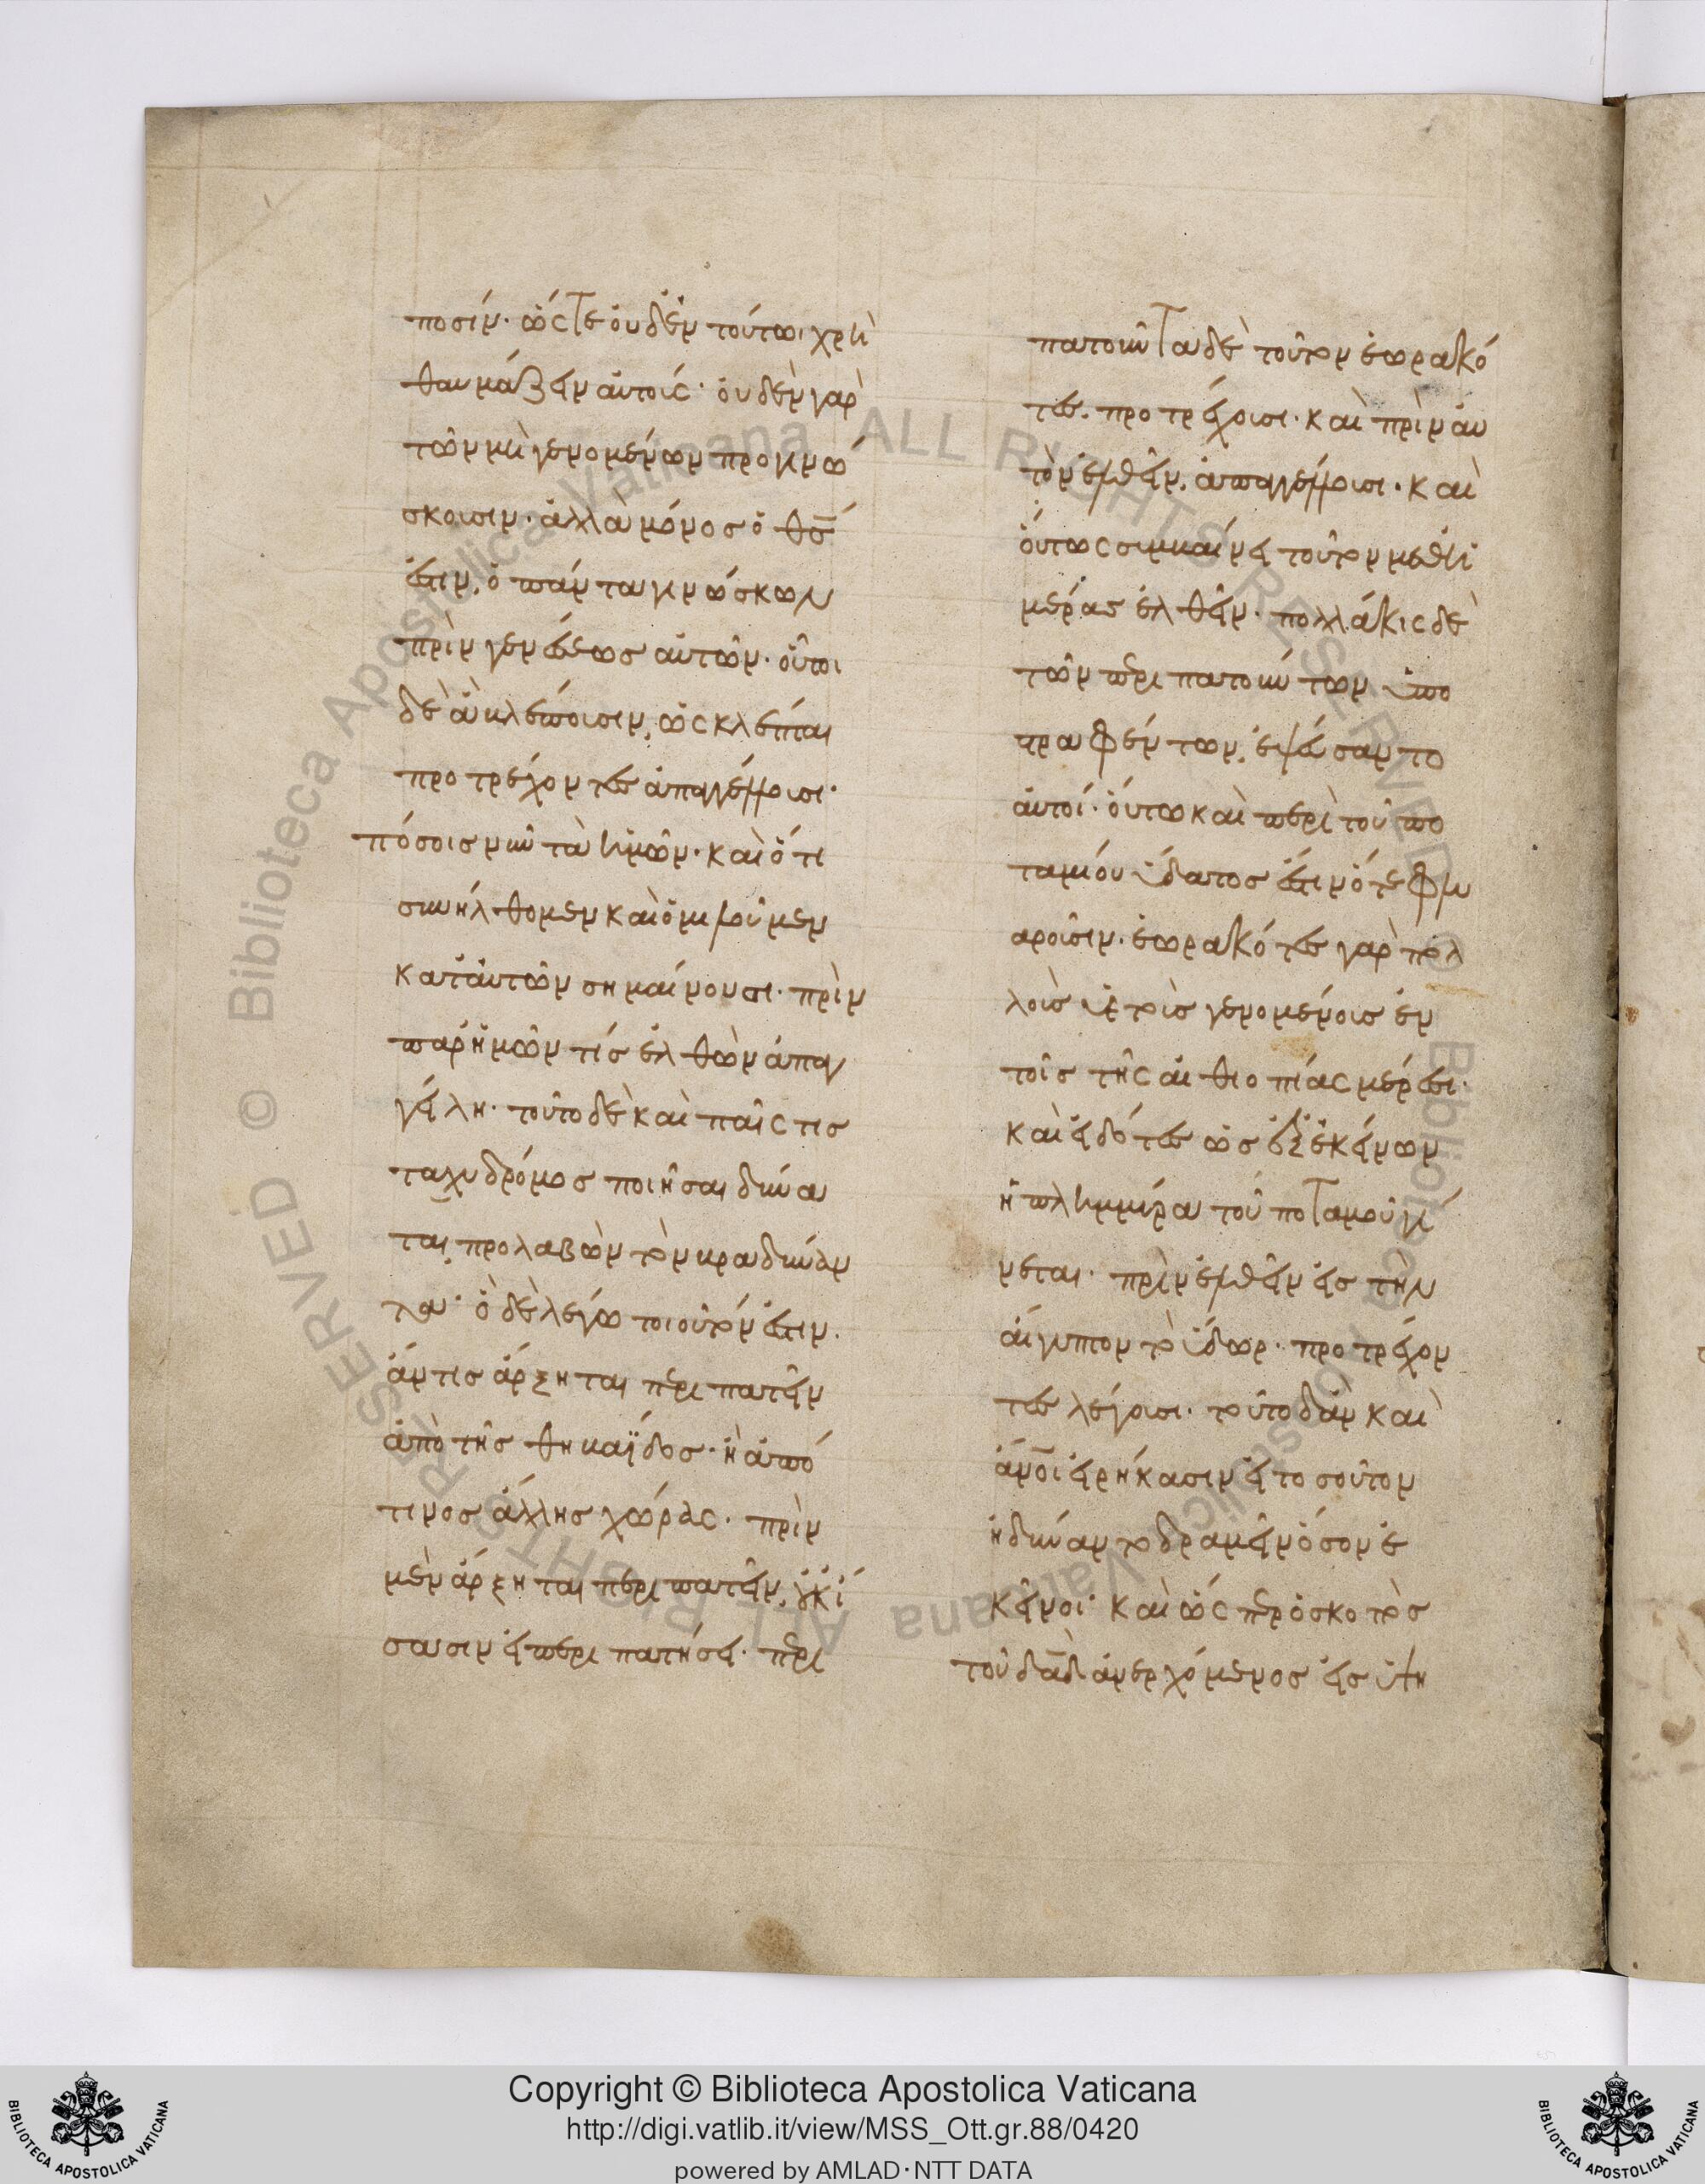 ποσίν· ὥστε οὐδὲν τούτωι χρὴ
θαυμάζειν αὐτοῖς· οὐδὲν γὰρ
τῶν μὴ γενομένων προγινώ
σκουσιν· ἀλλὰ μόνος ὁ θς
ἐστιν, ὁ πάντα γινώσκων
πρὶν γενέσεως αὐτῶν· οὗτοι
δὲ ἃ βλέπουσιν, ὡς κλέπται
προτρέχοντες ἀπαγγέλλουσι·
πόσοις νῦν τὰ ἡμῶν· καὶ ὅτι
συνήλθομεν καὶ ὁμιλοῦμεν
κατ' αὐτῶν σημαίνουσι· πρὶν
παρ' ἡμῶν τίς ἐλθὼν ἀπαγ
γείλη· τοῦτο δὲ καὶ παῖς τις
ταχυδρόμος ποιῆσαι δύνα
ται, προλαβὼν τὸν βραδύνον
τα· ὃ δὲ λέγω τοιοῦτόν ἐστιν·
ἄν τις ἄρξηται περιπατεῖν
ἀπὸ τῆς θηβαΐδος· ἢ ἀπό
τινος ἄλλης χώρας· πρὶν
μὲν ἄρξηται περιπατεῖν, οὐκ ἴ
σασιν εἰ περιπατήσει· περι
πατοῦντα δὲ τοῦτον ἑωρακό
τες, προτρέχουσι· καὶ πρὶν αὐ
τὸν ἐλθεῖν, ἀπαγγέλλουσι· καὶ
οὕτως συμβαίνει τοῦτον μεθ' ἡ
μέρας ἐλθεῖν· πολλάκις δὲ
τῶν περιπατούντων ὑπο
στραφέντων, ἐψεύσαντο
αὐτοί· οὕτω καὶ περὶ τοῦ πο
ταμίου ὕδατος ἔστιν ὅτε φλυ
αροῦσιν· ἑωρακότες γὰρ πολ
λοὺς ὑετοὺς γενομένους ἐν
τοῖς τῆς αἰθιοπίας μέρεσι·
καὶ εἰδότες ὡς ἐξ ἐκείνων
ἡ πλημμύρα τοῦ ποταμοῦ γί
νεται· πρὶν ἐλθεῖν εἰς τὴν
αἴγυπτον τὸ ὕδωρ· προτρέχον
τες λέγουσι· τοῦτο δ' ἂν καὶ
ἄνοι εἰρήκασιν εἰ τοσοῦτον
ἠδύναντο δραμεῖν ὅσον ἐ
κεῖνοι· καὶ ὥσπερ ὁ σκοπὸς
τοῦ δαδ ἀνερχόμενος εἰς ὑψη
Copyright © Biblioteca Apostolica Vaticana
http://digi.vatlib.it/view/MSS_Ott.gr.88/0420
powered by AMLAD·NTT DATA
BIBLIOTECA APOSTOLICA VATICANA
BIBLIOTECA APOSTOLICA VATICANA